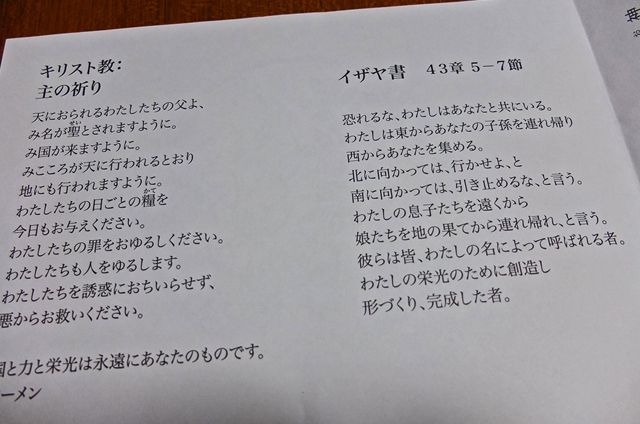 キリスト教：
主の祈り
天におられるわたしたちの父よ、
み名が聖とされますように。
み国が来ますように。
みこころが天に行われるとおり
地にも行われますように。
わたしたちの日ごとの糧を
今日もお与えください。
わたしたちの罪をおゆるしください。
わたしたちも人をゆるします。
わたしたちを誘惑におちいらせず、
悪からお救いください。
国と力と栄光は永遠にあなたのものです。
ーメン
イザヤ書　４３章 ５−７節
恐れるな、わたしはあなたと共にいる。
わたしは東からあなたの子孫を連れ帰り
西からあなたを集める。
北に向かっては、行かせよ、と
南に向かっては、引き止めるな、と言う。
わたしの息子たちを遠くから
娘たちを地の果てから連れ帰れ、と言う。
彼らは皆、わたしの名によって呼ばれる者。
わたしの栄光のために創造し
形づくり、完成した者。